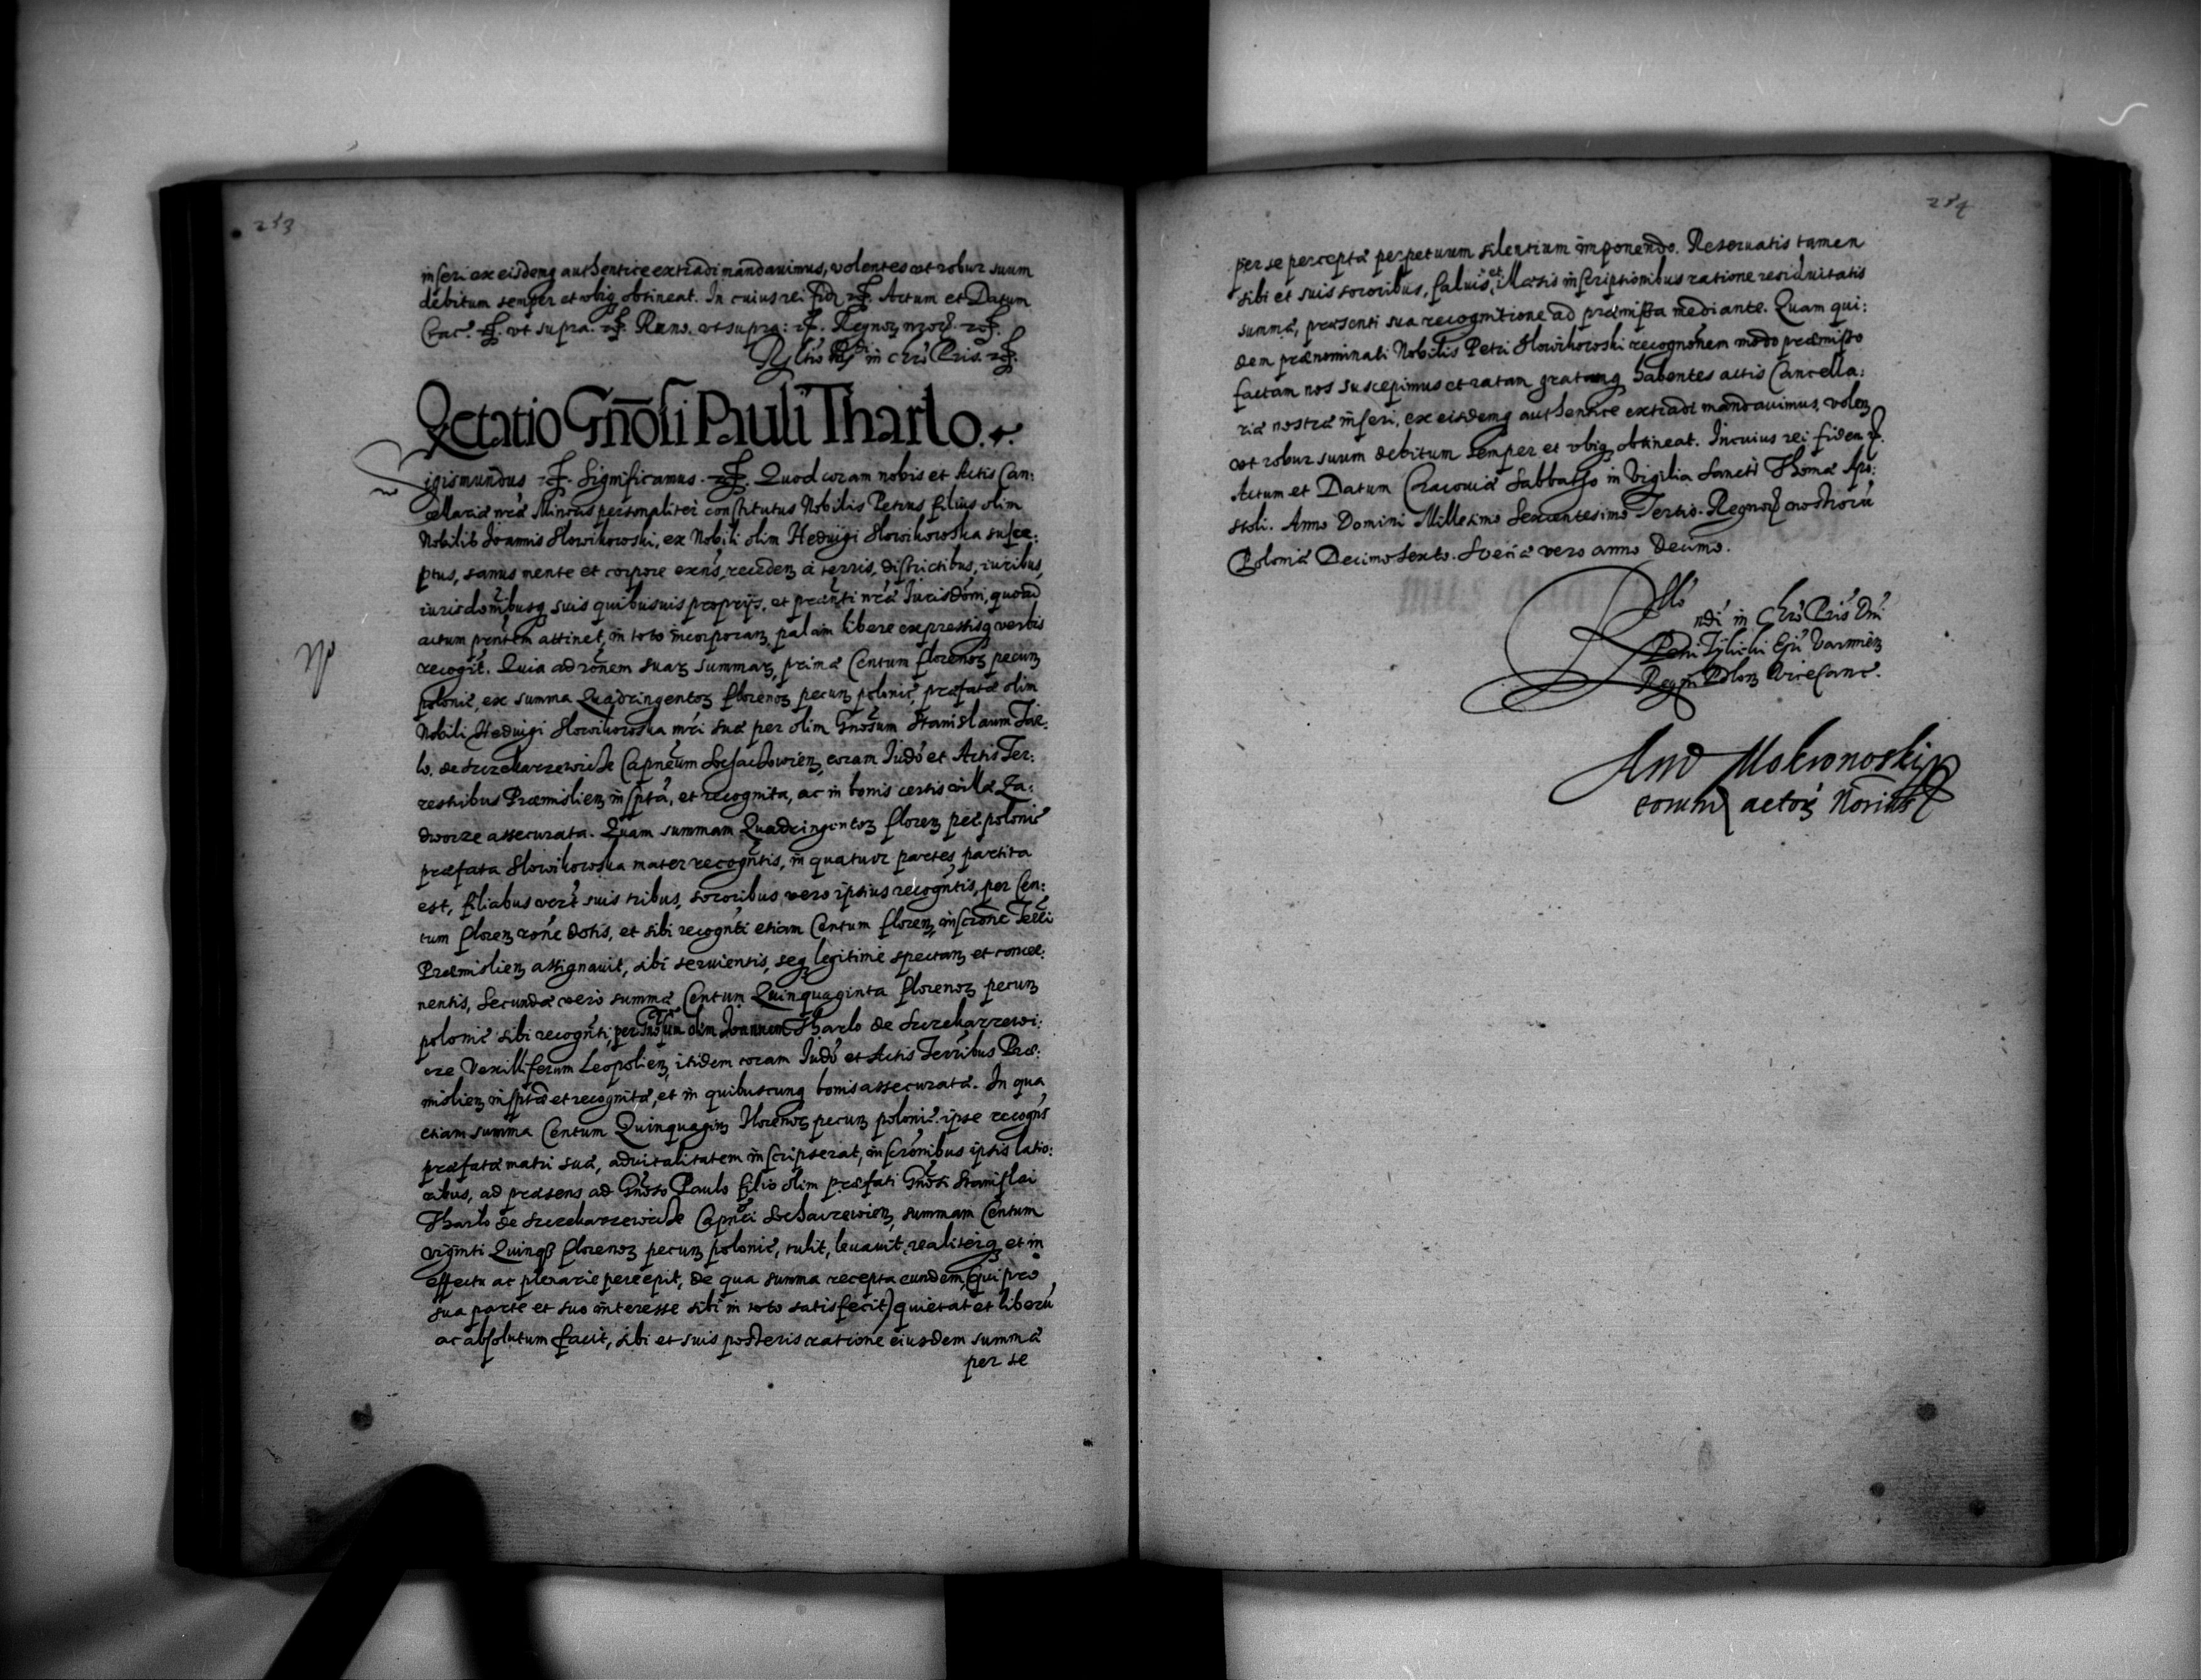 253
inseri ex eisdemq authentice extradi mandauimus, volentes vt robur suum
debitum semper et vbiq obtineat. In cuius rei fidē etc. Actum et Datum
Crac. etc. vt supra. etc. Anno. vt supra: etc. Regnoȝ nroȝ. etc.
Rltio Rndi in Chro Pris. etc.
Qetatio Gnōsi Pauli Tharlo.
Sigismundus etc. Significamus. etc. Quod coram nobis et Actis Can:
cellariæ nræ Minoris personaliter constitutus Nobilis Petrus filius olim
Nobilis Joannis Slowikowski, ex Nobili olim Heduigi Slowikowska susce:
ptus, sanus mente et corpore exñs, recedenȝ a terris, districtibus, iuribus,
iurisdonibusq suis quibusuis proprijs, et præsenti nræ Jurisdōni, quoad
actum pñtem attinet, in toto incorporanȝ, palam libere expressisq verbis
recogit. Quia ad rōnem suaȝ summaȝ, primæ Centum florenoȝ pecunȝ
poloniĉ, ex summa Quadringentoȝ florenoȝ pecunȝ poloniĉ, præfatæ olim
Nobili Heduigi Slowikowska mri suæ per olim Gnosum Stanislaum Tar:
lo. de Szczekarzewicze Capneum Sochaczowienȝ, coram Judō et Actis Ter:
restribus Præmislienȝ insptâ, et recognita, ac in bonis certis villæ Za:
dworze assecurata. Quam summam Quadringentoȝ florenȝ peĉ poloniĉ
præfata Slowikowska mater recogntis, in quatuor partes partita
est, filiabus vero suis tribus, sororibus vero ipsius recogntis, per Cen:
tum florenȝ rōne dotis, et sibi recognti etiam Centum florenȝ, inscrōne Terri
Præmislienȝ assignauit, sibi seruientis, seq legitime spectanȝ et conce:
nentis, Secundæ vero summæ Centum Quinquaginta florenoȝ pecunȝ
poloniĉ sibi recognti, per Gnosum olim Joannem Tharlo de Szczekarzewi:
cze Vexilliferum Leopolienȝ, itidem coram Judō et Actis Terribus Præ:
mislienȝ insptæ et recognitæ, et in quibuscunq bonis assecuratæ. In qua
etiam summa Centum Quinquaginȝ florenoȝ pecunȝ poloniĉ. ipse recogñs
præfatæ matri suæ, aduitalitatem inscripserat, inscrōnibus ipsis latio:
ribus, ad præsens ad Gnoso Paulo filio olim præfati Gnosi Stanislai
Tharlo de Szczekarzewicze Capnei Sochaczewienȝ, summam Centum
viginti Quinq florenoȝ pecunȝ poloniĉ, tulit, leuauit, realiterq et in
effectu ac plenarie percepit, de qua summa recepta eundem (qui pro
sua parte et suo interesse sibi in toto satisfecit) quietat et liberū
ac absolutum facit, sibi et suis posteris ratione eiusdem summæ
per se
254
per se perceptæ perpetuum silentium imponendo. Reseruatis tamen
sibi et suis sororibus, saluis et illæsis inscriptionibus ratione residuitatis
summæ, præsenti sua recognitione ad præmissa mediante. Quam qui:
dem prænominati Nobilis Petri Slowikowski recognōnem modo præmisso
factam nos suscepimus et ratam gratamq habentes actis Cancella:
riæ nostræ inseri, ex eisdemq authentice extradi mandauimus, volenȝ
vt robur suum debitum semper et vbiq obtineat. In cuius rei fidem etc.
Actum et Datum Cracouiæ Sabbatho in Vigilia Sancti Thomæ Apo:
stoli. Anno Domini Millesimo Sexcentesimo Tertio. Regnoȝ nostrorū
Poloniæ Decimo Sexto. Sueciæ vero anno Decimo.
Rltio
Rndi in Chro Pris Dni
Petri Tylicki Epi Varmienȝ
Regni Polonȝ Vicecanc.
And Mokronoski
eorum actoȝ Norius